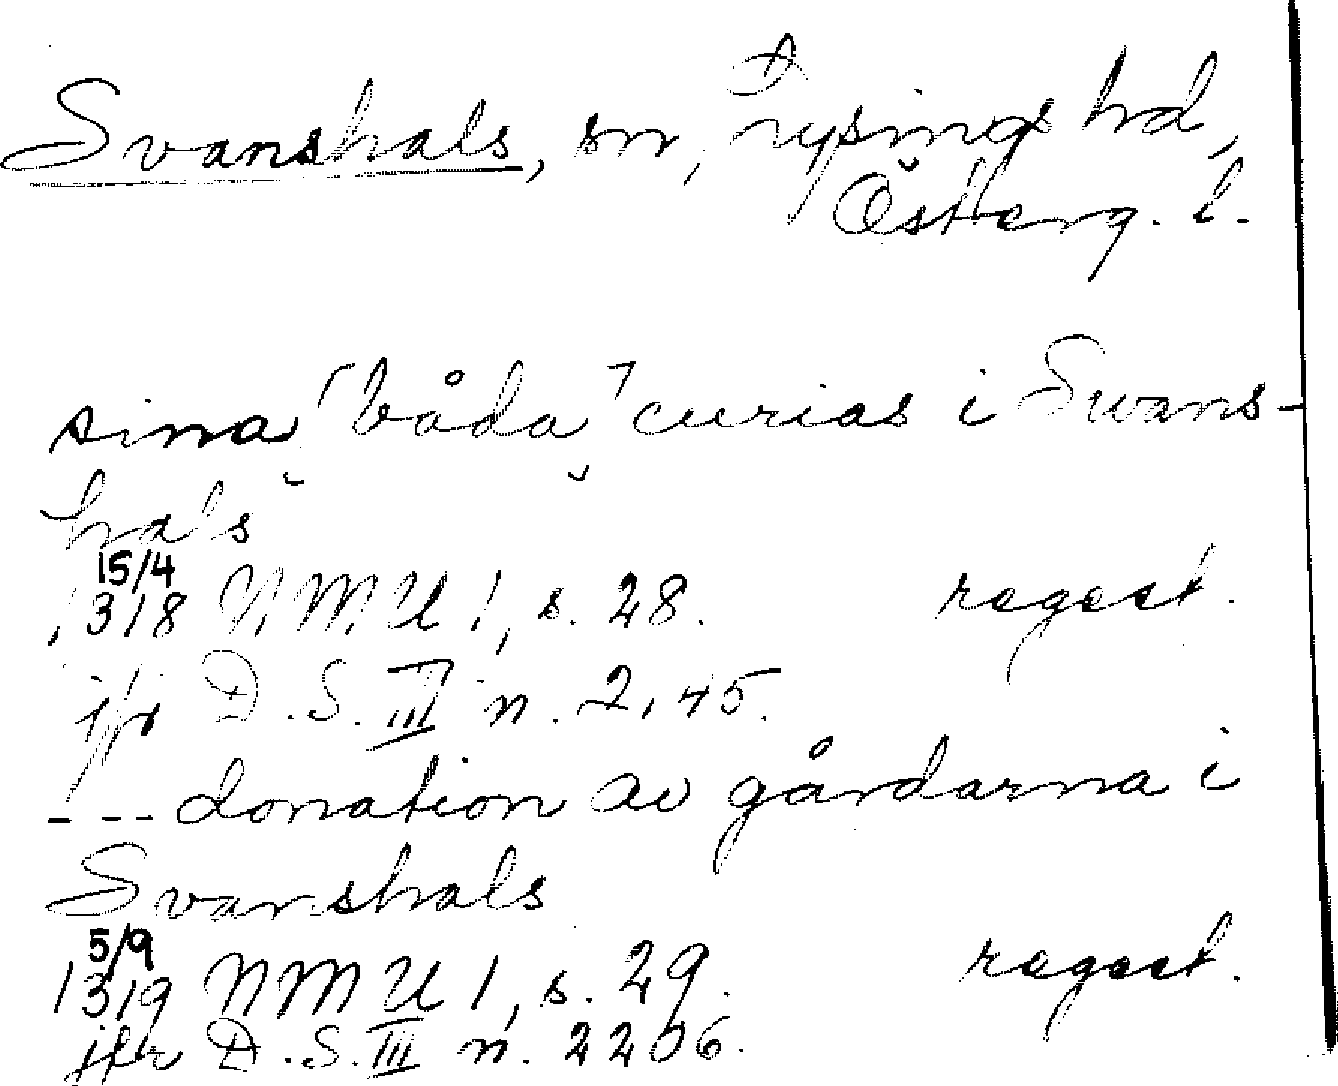 Svanshals, sn, Lysings hd,
Österg. l.
sina ⌈båda⌉ curias i Swans-
hals
15/4
1318 NMU 1, s. 28. regest.
jfr D.S. III n. 2145.
--- donation av gårdarna i
Svanshals
5/9
1319 NMU 1, s. 29. regest.
jfr D.S. III n. 2206.